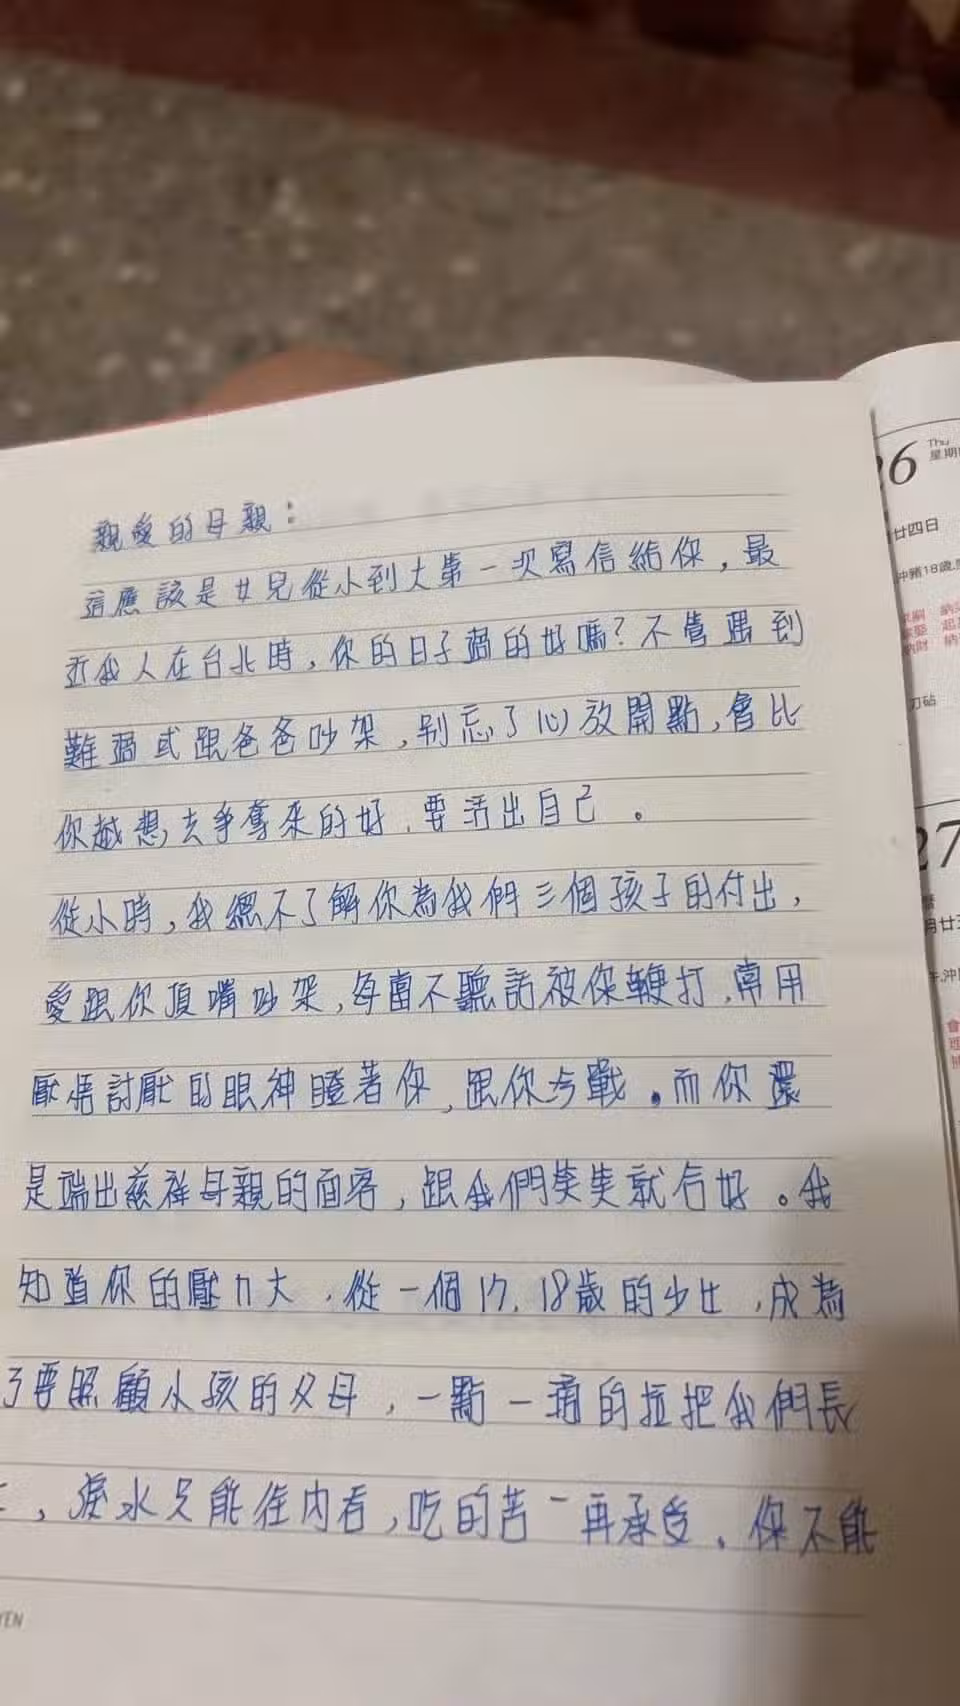 親愛的母親：
這應該是女兒從小到大第一次寫信給你，最
近我人在台北時，你的日子過的好嗎？不管遇到
難過或跟爸爸吵架，別忘了心放開點，會比
你越想去爭奪來的好，要活出自己。
從小時，我總不了解你為我們三個孩子的付出，
愛跟你頂嘴吵架，每當不聽話被你鞭打，常用
厭惡討厭的眼神瞪著你，跟你芳戰。而你還
是端出慈祥母親的面容，跟我們笑笑就和好。我
知道你的壓力大，從一個17、18歲的少女，成為
了要照顧小孩的父母，一點一滴的拉把我們長
，淚水只能往內吞，吃的苦一再承受，你不能
YEN
26
Thu
星期
廿四日
沖豬18歲
刀砧
27
月廿五